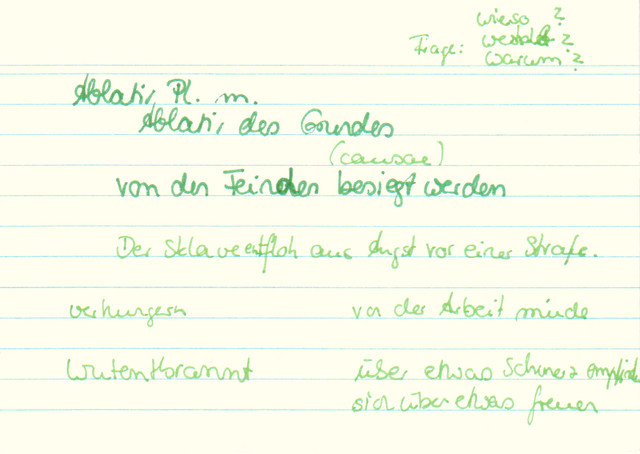 wieso ?
Frage: weshalb ?
warum ?
Ablativ, Pl. m.
Ablativ des Grundes
(causae)
von den Feinden besiegt werden
Der Sklave entfloh aus Angst vor einer Strafe.
verhungern von der Arbeit müde
wutentbrannt über etwas Schmerz empfinden
sich über etwas freuen